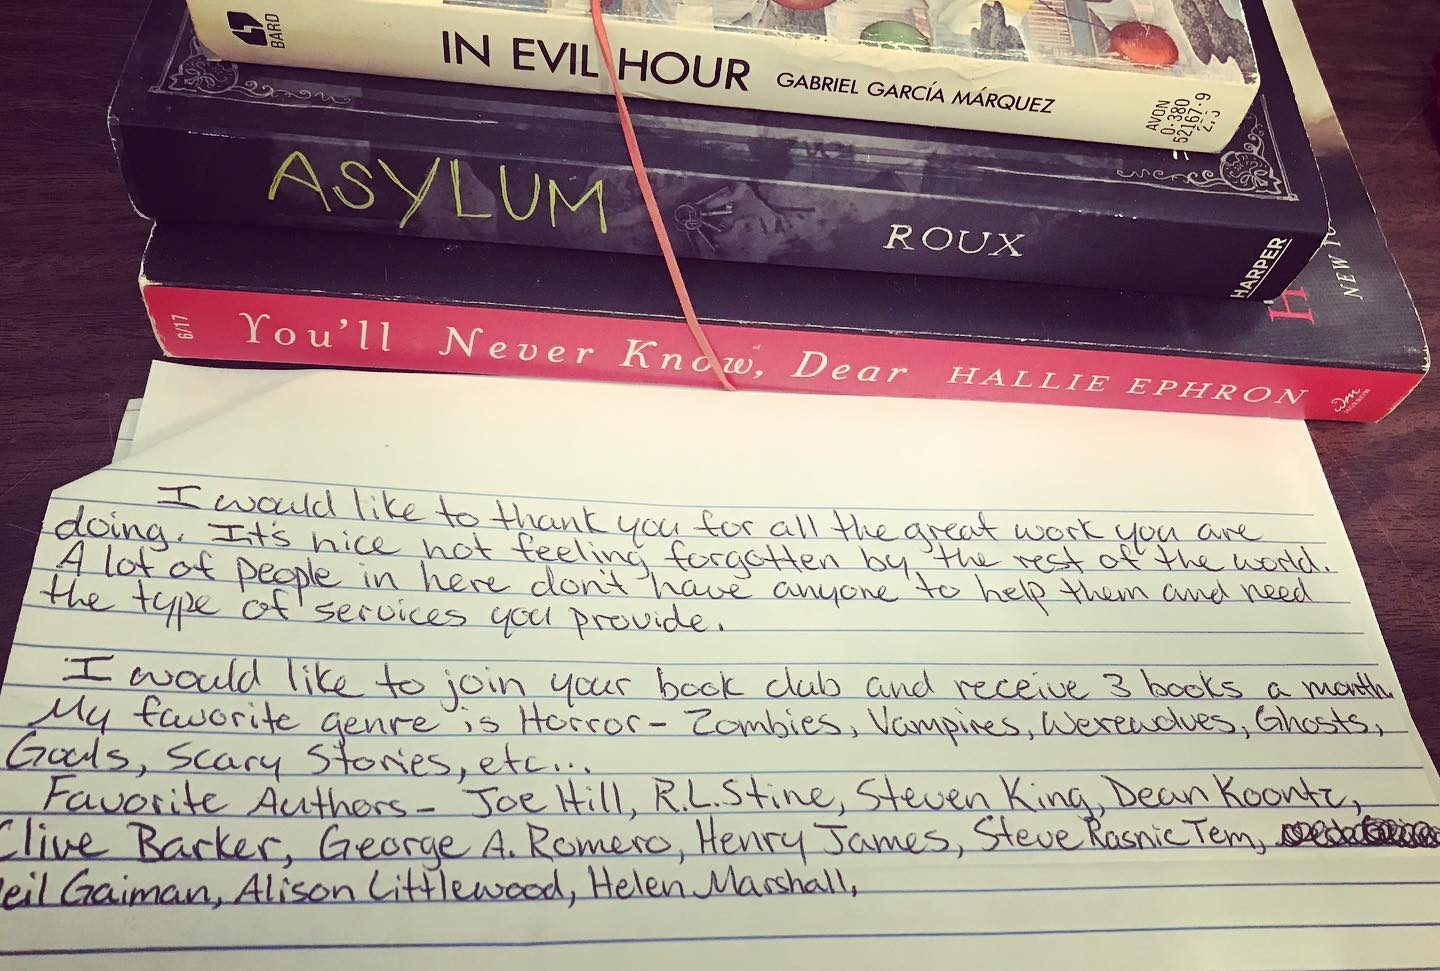 BARD
IN EVIL HOUR GABRIEL GARCÍA MÁRQUEZ
AVON
0·380
52167·9
ASYLUM ROUX
HARPER
NEW
H
6/17 You'll Never Know, Dear HALLIE EPHRON wm
I would like to thank you for all the great work you are
doing. It's nice not feeling forgotten by the rest of the world.
A lot of people in here don't have anyone to help them and need
the type of services you provide.
I would like to join your book club and receive 3 books a month
My favorite genre is Horror- Zombies, Vampires, Werewolves, Ghosts,
Gouls, Scary Stories, etc...
Favorite Authors- Joe Hill, R.L.Stine, Steven King, Dean Koontz,
Clive Barker, George A. Romero, Henry James, Steve Rasnic Tem,
eil Gaiman, Alison Littlewood, Helen Marshall,